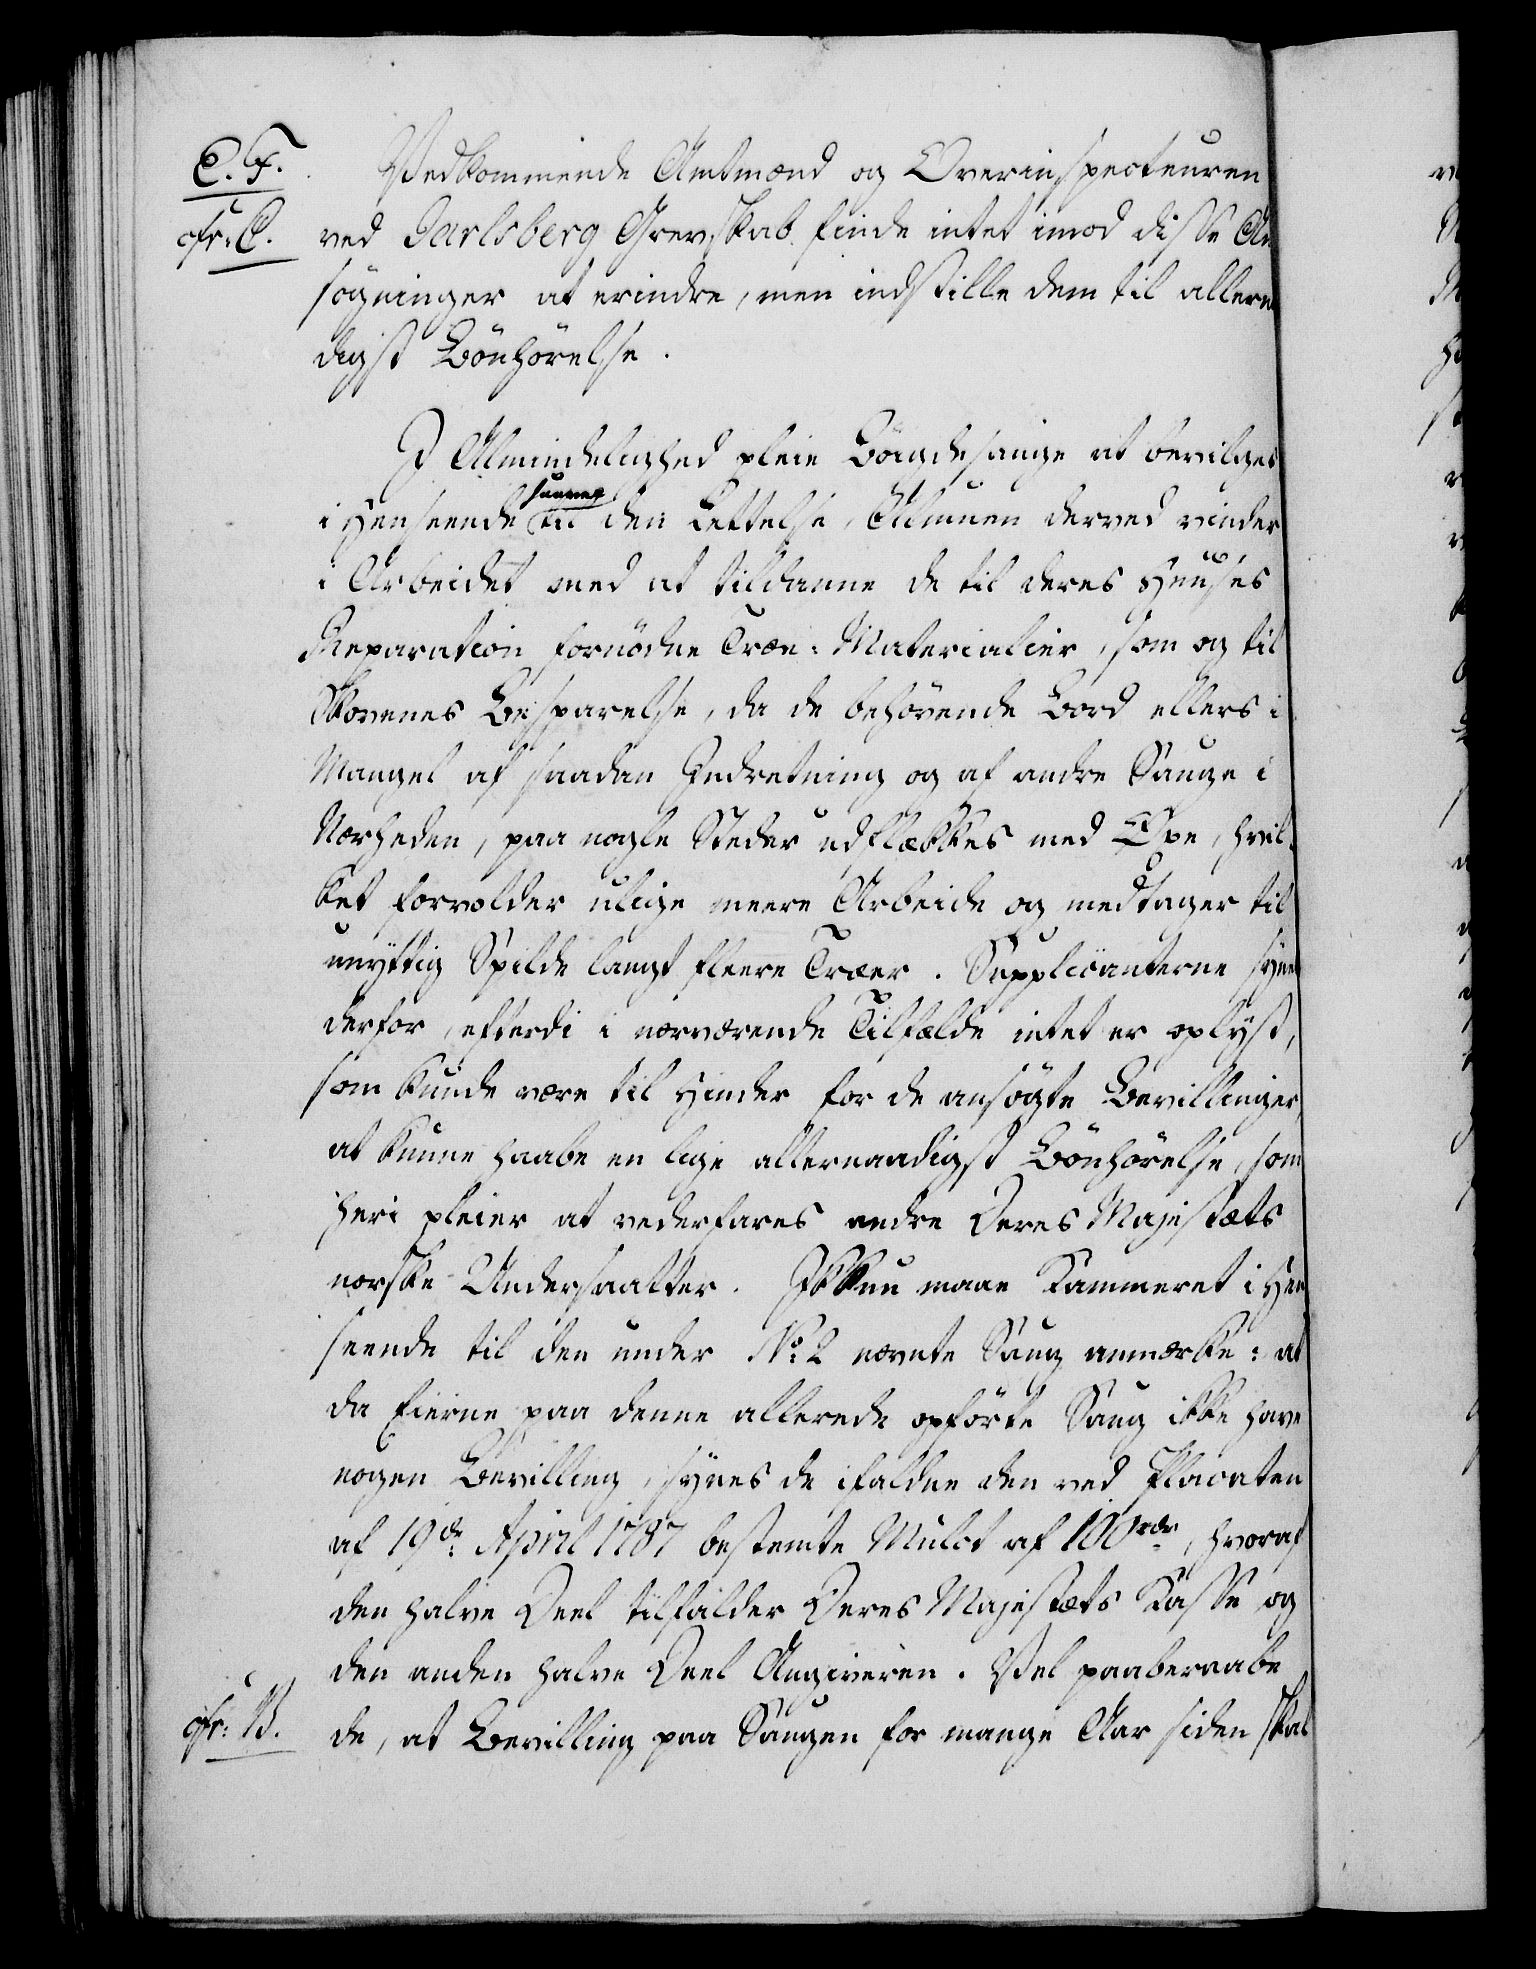 C. F.
cfr: C.
Vedkommende Amtmænd og Overinspecteuren
ved Jarlsberg Grevskab finde intet imod disse An
søgninger at erindre, men indstille dem til allern
digst Bønhørelse.
I Almindelighed pleie Bøigdesauge at bevilges
saavel
i Henseende til den Lettelse, Almuen derved vinder
i Arbeidet med at tildanne de til deres Huuses
Reparation fornødne Træe-Materialier, som og til
Skovenes Besparelse, da de behøvende Bord ellers i
Mangel af saadan Indretning og af andre Sauge i
Nærheden, paa nogle Steder udflækkes med Øxe, hvil-
ket forvolder ulige meere Arbeide og medtager til
unyttig Spilde langt fleere Træer. Supplicanterne synes
derfor, efterdi i nærværende Tilfælde intet er oplyst,
som kunde være til Hinder for de ansøgte Bevillinger,
at kunne haabe en lige allernaadigst Bønhørelse, som
heri pleier at vederfares andre Deres Majestæts
norske Undersaatter. Ikkun maae Kammeret i Hen
seende til den under No: 2 nævnte Saug anmærke: at
da Eierne paa denne allerede opførte Saug ikke have
nogen Bevilling, synes de ifaldne den ved Placaten
af 19de April 1787 bestemte Mulct af 100 rdr, hvoraf
den halve Deel tilfalder Deres Majestæts Kasse og
den anden halve Deel Angiveren. Vel paaberaabe
cfr: B.
de, at Bevilling paa Saugen for mange Aar siden skal